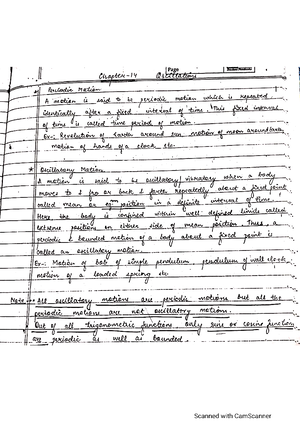 Page
Chapter-14 Oscillations
* Periodic Motion
A motion is said to be periodic motion which is repeated
identically after a fixed interval of time. This fixed interval
of time is called time period of motion
Ex:- Revolution of Earth around sun, motion of moon around Earth,
motion of hands of a clock etc.
* Oscillatory Motion
A motion is said to be oscillatory/vibratory when a body
moves to & fro or back & forth repeatedly about a fixed point
called mean or eqm position in a definite interval of time.
Here the body is confined within well defined limits called
extreme positions on either side of mean position. Thus a
periodic & bounded motion of a body about a fixed point is
called an oscillatory motion.
Ex:- Motion of bob of simple pendulum, pendulum of wall clock,
motion of a loaded spring etc
Note → All oscillatory motions are periodic motions but all the
periodic motions are not oscillatory motions.
Out of all trigonometric functions, only sine or cosine functions
are periodic as well as bounded.
Scanned with CamScanner